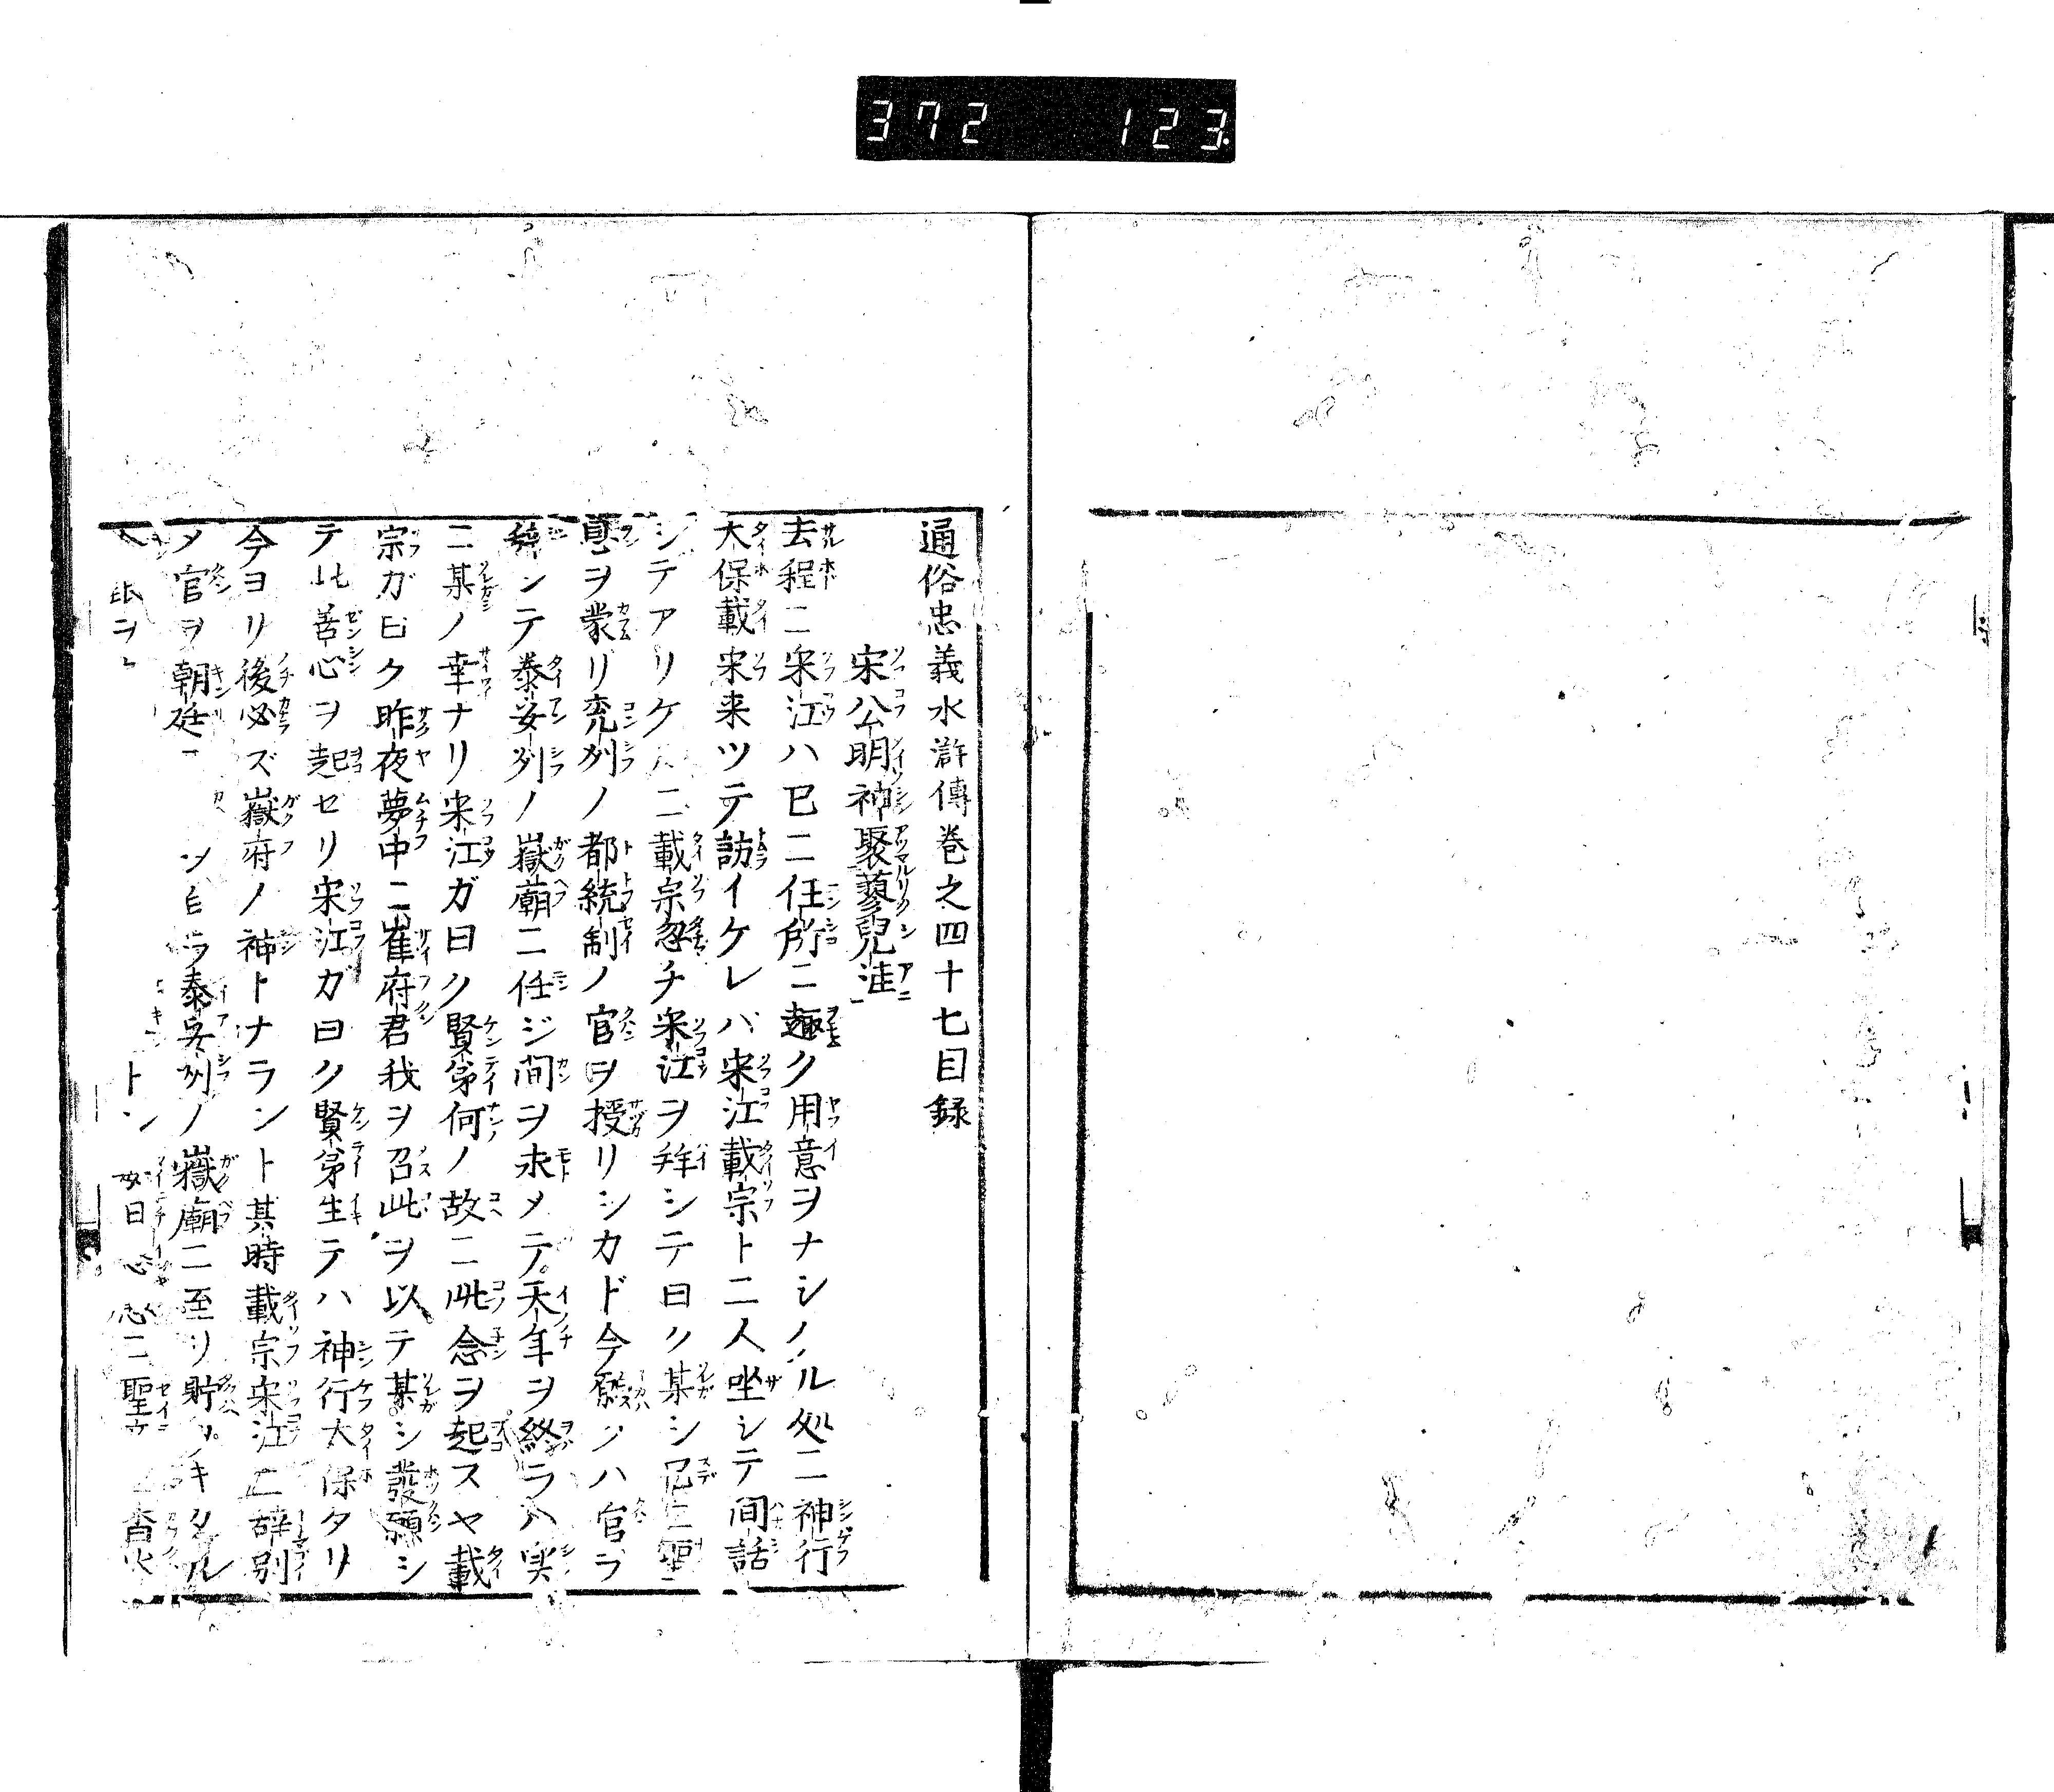 372 123
通俗忠義水滸傳巻之四十七目録
宋公明神聚蓼兒洼
去程ニ宋江ハ已ニ任所ニ趣ク用意ヲナシノル処ニ神行
大保載宋来ツテ訪イケレバ宋江載宗ト二人坐シテ間話
シテアリケルニ載宗忽チ宋江ヲ拜シテ曰ク某シ已ニ聖
恩ヲ蒙リ兖州ノ都統制ノ官ヲ授リシカド今願クハ官ラ
辞シテ泰安州ノ嶽廟ニ任ジ間ヲ求メテ天年ヲ終ラハ実
ニ某ノ幸ナリ宋江ガ曰ク賢弟何ノ故ニ此念ヲ起スヤ載
宗ガ曰ク昨夜夢中ニ崔府君我ヲ召此ヲ以テ某シ發願シ
テ此善心ヲ起セリ宋江ガ曰ク賢弟生テハ神行大保タリ
今ヨリ後必ズ嶽府ノ神トナラント其時載宗宋江ニ辞別
メ官ヲ朝廷 泰安州ノ嶽廟ニ至リ貯 キタル
ヲ 日 ニ聖 香火